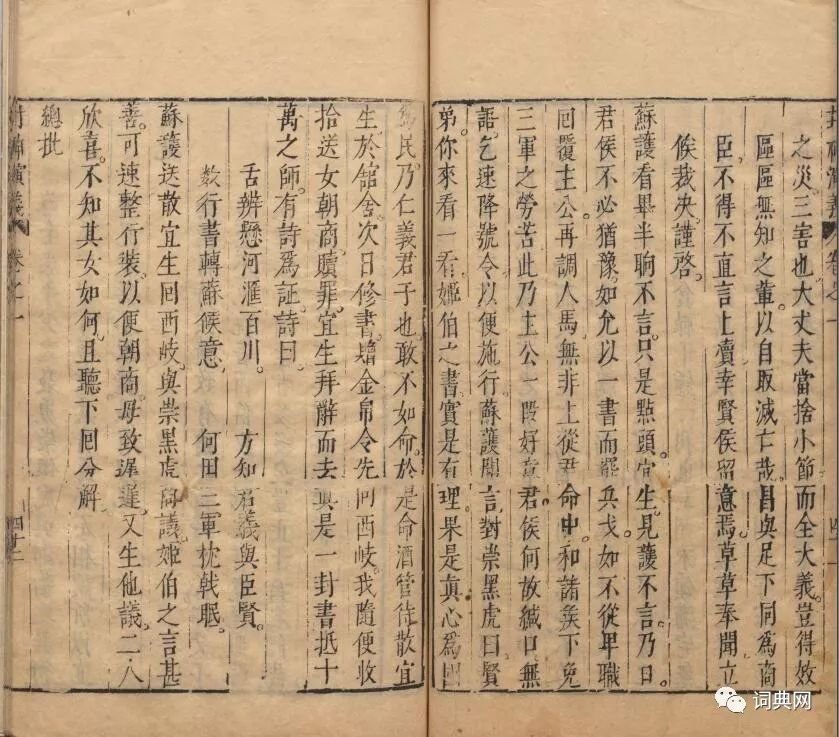 之災三害也大丈夫當捨小節而全大義豈得效
區區無知之輩以自取滅亡哉昌與足下同為商
臣不得不直言上瀆幸賢侯留意焉草草奉聞立
候裁决謹啓
蘇護看畢半晌不言只是點頭宜生見護不言乃曰
君侯不必猶豫如允以一書而罷兵戈如不從卑職
回覆主公再調人馬無非上從君命中和諸矦下免
三軍之勞苦此乃主公一段好意君侯何故緘口無
語乞速降號令以便施行蘇護聞言對崇黑虎曰賢
弟你來看一看姬伯之書實是有理果是真心爲國
爲民乃仁義君子也敢不如命於是命酒管待散宜
生於舘舍次日修書增金帛令先回西岐我隨便收
拾送女朝商贖罪宜生拜辭而去眞是一封書抵十
萬之師有詩爲証詩曰
舌辨懸河滙百川 方知君義與臣賢
数行書轉蘓候意 何用三軍枕戟眠
蘇護送散宜生回西岐與崇黑虎啇議姬伯之言甚
善可速整行裝以便朝商毋致遲遲又生他議二人
欣喜不知其女如何且聽下回分解
總批
封神演義 卷之一 四十二
词典网